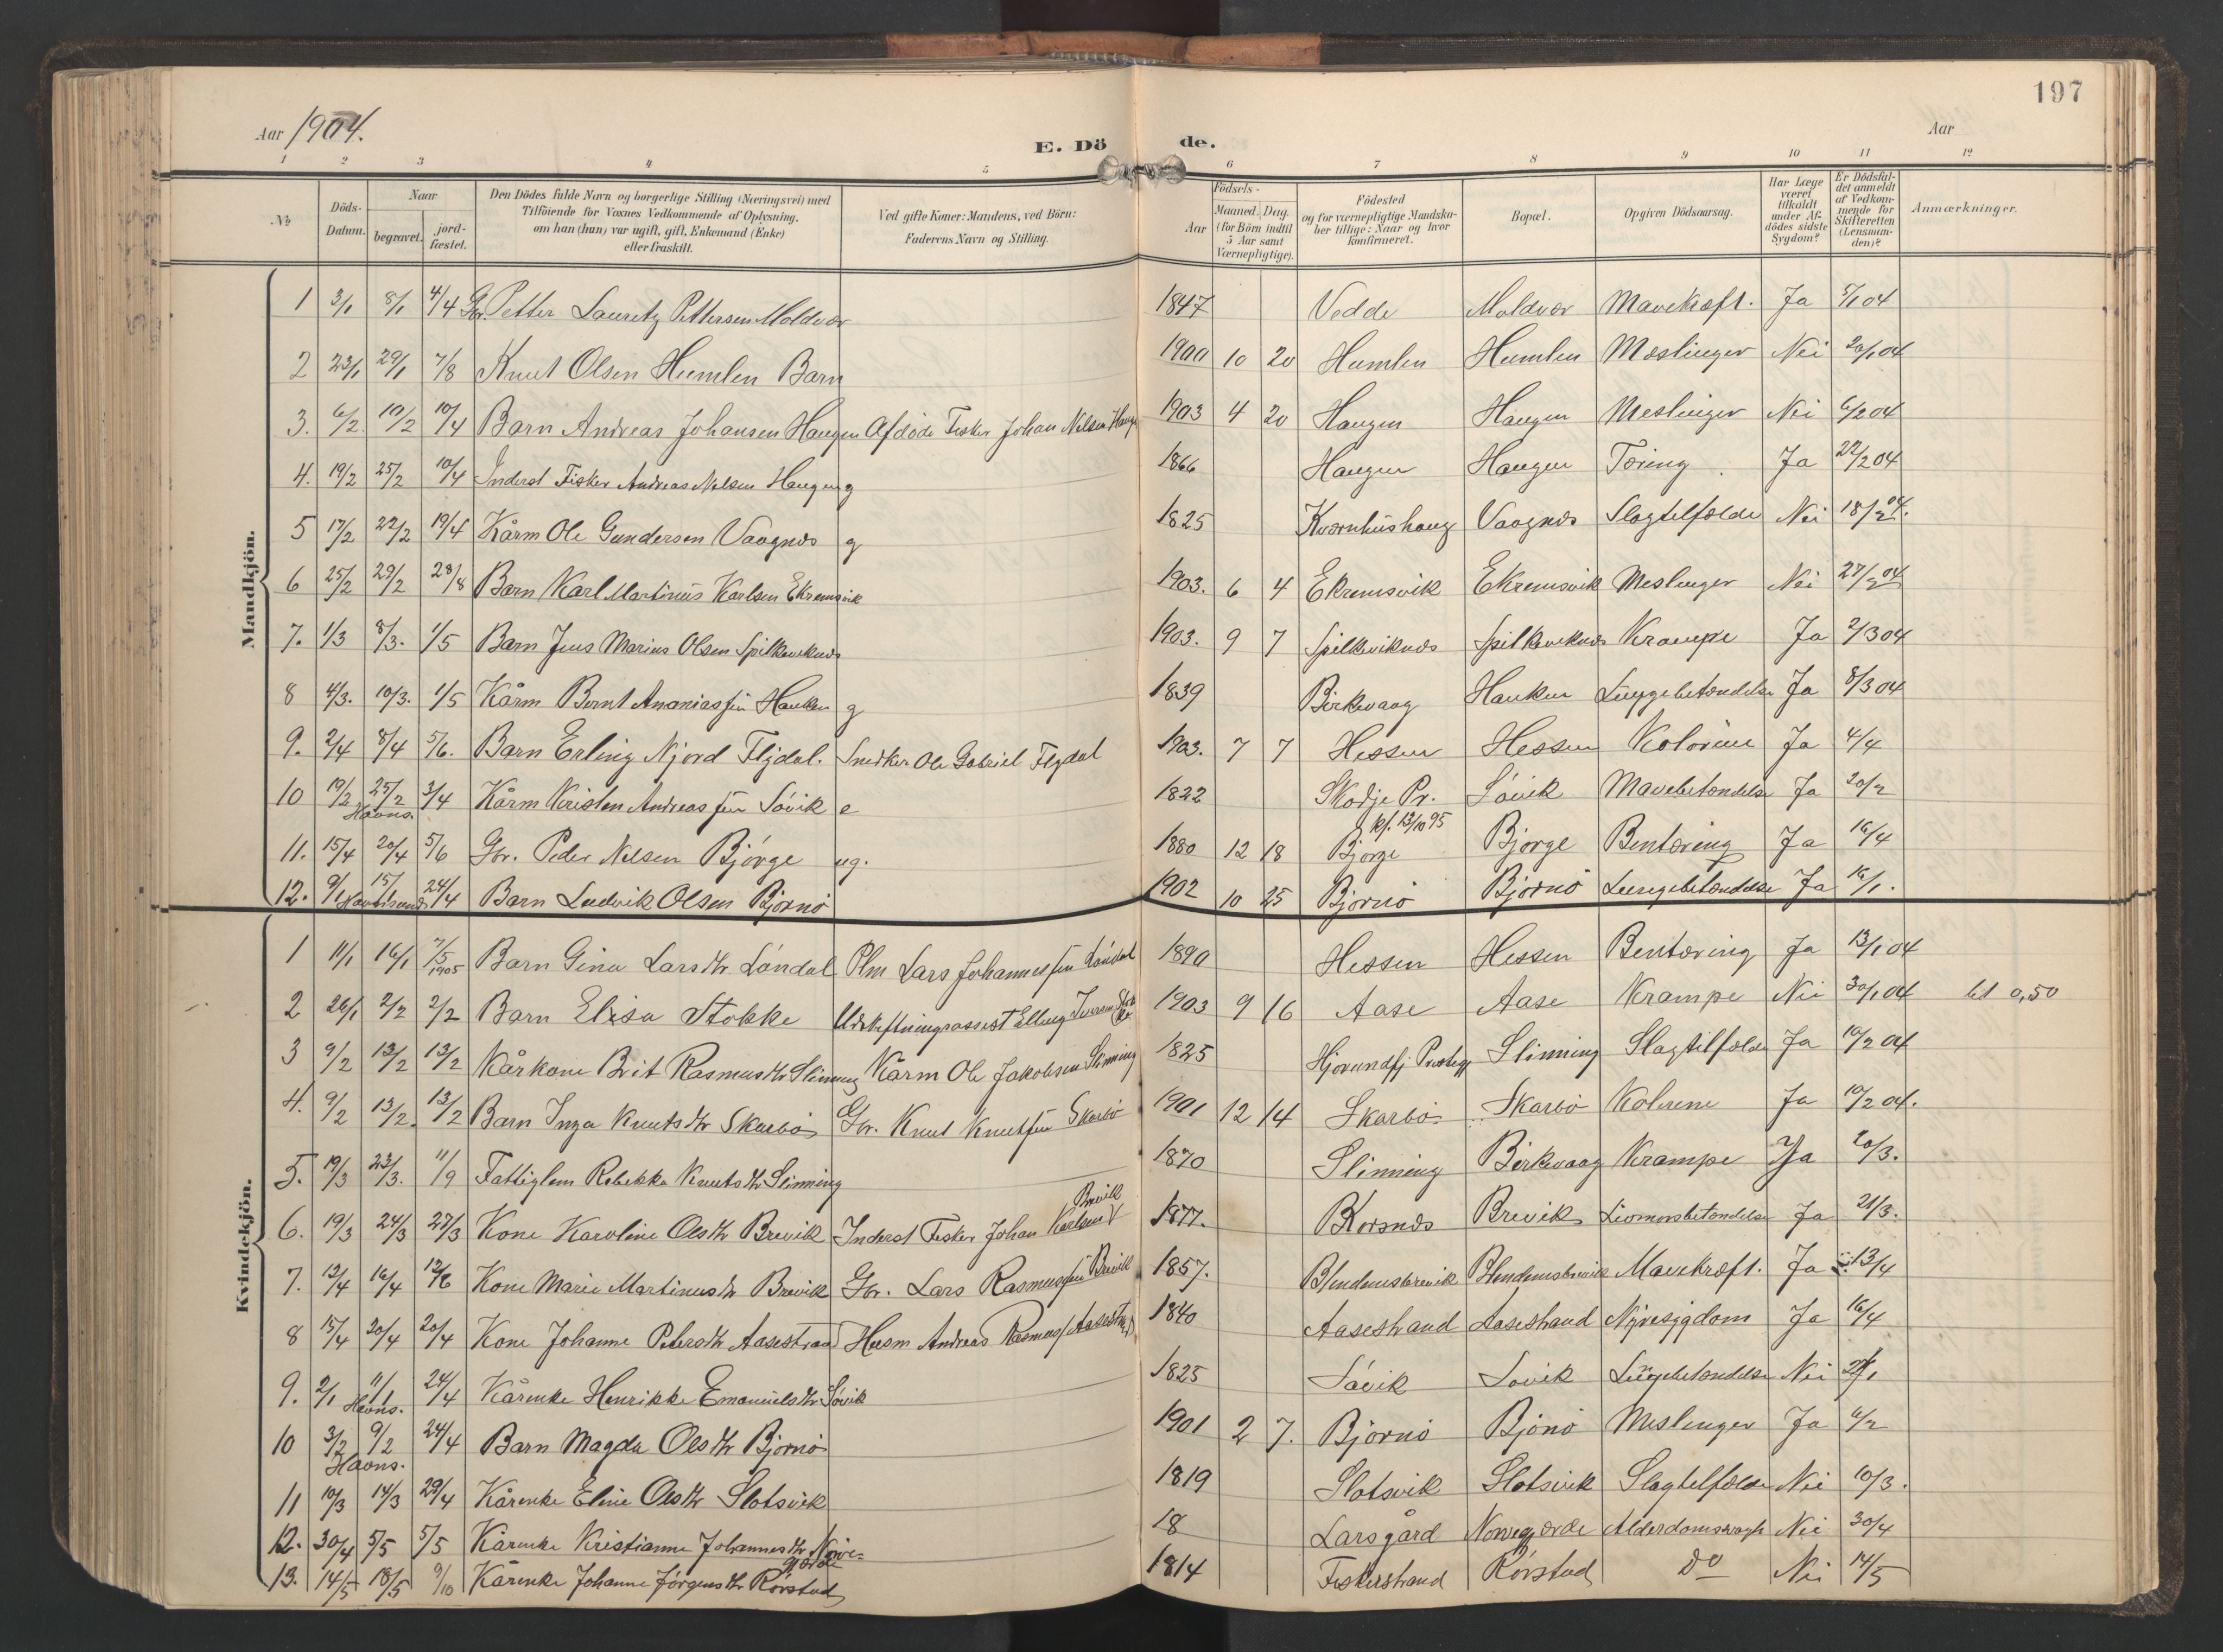 197
Aar 1904.
E. Döde.
Aar
1 2 3 4 5 6 7 8 9 10 11 12
№
Döds-Datum.
Naar
begravet.
jord-fæstet.
Den Dödes fulde Navn og borgerlige Stilling (Næringsvei) med
Tilföiende for Voxnes Vedkommende af Oplysning.
om han (hun) var ugift, gift, Enkemand (Enke)
eller fraskilt.
Ved gifte Koner: Mandens, ved Börn:
Faderens Navn og Stilling.
Födsels-
Aar
Maaned. Dag.
(for Börn indtil
5 Aar samt
Værnepligtige).
Födested
og for værnepligtige Mandska-
ber tillige: Naar og hvor
konfirmeret.
Bopæl.
Opgiven Dödsaarsag.
Har Læge
været
tilkaldt
under Af-
dödes sidste
Sygdom?
Er Dödsfal-
det anmeldt
af Vedkom-
mende for
Skifteretten
(Lensman-
den)?
Anmærkninger.
Mandkjön.
1 3/1 8/1 4/4 Gbr. Petter Lauretz Pettersen Moldvær 1847 Vedde Moldvær Mavekræft. Ja 5/1 04
2 23/1 29/1 7/8 Knut Olsen Humlen Barn 1900 10 20 Humlen Humlen Mæslinger Nei 20/1 04
3. 6/2 10/2 10/4 Barn Andreas Johansen Haugen Afdöde Fisker Johan Nelsen Hauge 1903 4 20 Haugen Haugen Meslinger Nei 6/2 04
4. 19/2 25/2 10/4 Inderst Fisker Andreas Nelsen Haugen g 1866 Haugen Haugen Tæring. Ja 22/2 04
5 17/2 22/2 19/4 Kårm Ole Gundersen Vaagnæs g 1825 Kværnhushaug Vaagnæs Slagtelfælde Nei 18/2 04.
6 25/2 29/2 28/8 Barn Karl Martinus Karlsen Ekremsvik 1903. 6 4 Ekremsvik Ekremsvik Meslinger Nei 27/2 04
7. 1/3 8/3. 1/5 Barn Jens Marius Olsen Spilkeviknæs 1903. 9 7 Spilkeviknæs Spilkeviknæs Krampe Ja 2/3 04
8 4/3. 10/3. 1/5 Kårm Bernt Ananiassen Hauken g 1839 Birkevaag Hauken Lungebetændelse Ja 8/3 04
9. 2/4 8/4 5/6. Barn Erling Njord Flydal. Snedker Ole Gabriel Flydal 1903. 7 7 Hessen Hessen Kolerine Ja 4/4
10 19/2 25/2 3/4 Kårm Kristen Andreassen Sövik e 1822 Skodje Pr. Sövik Mavebetændelse Ja 20/2
Havns.
kf. 13/10 95
11. 15/4 20/4 5/6 Gbr. Peder Nelsen Björge ug. 1880 12 18 Björge Björge Bentæring Ja 16/4
12. 9/1 15/1 24/4 Barn Ludvik Olsen Björnö 1902 10 25 Björnö Björnö Lungebetændelse Ja 16/1.
Kvindekjön.
1 11/1 16/1 7/5 1905 Barn Gina Larsdtr Löndal Plm Lars Johannessen Löndal 1890 Hessen Hessen Bentæring Ja 13/1 04
2 26/1 2/2 2/2 Barn Elisa Stokke Udskiftningsassist Elling Iversen 1903 9 16 Aase Aase Krampe Nei 30/1 04 0,50
3 9/2 13/2 13/2 Kårkone Brit Rasmusdtr Slinning Kårm Ole Jakobsen Slinning 1825 Hjörundfj Slinning Slagtilfælde Ja 10/2 04
4. 9/2 13/2. 13/2 Barn Inga Knutsdtr Skarbö Gbr. Knut Knutsen Skarbö 1901 12 14 Skarbö Skarbö Kolerine Ja 10/2 04.
5. 19/3 23/3. 11/9 Fattiglem Rebekka Knutsdtr Slinning 1870 Slinning Birkevaag Krampe Ja 20/3.
6. 19/3 24/3 27/3 Kone Karoline Olsdtr Brevik Inderst Fisker Johan Karlsen Brevik 1877. Korsnæs Brevik Livmorsbetændelse Ja 21/3.
7. 12/4 16/4 12/6 Kone Marie Martinusdtr Brevik Gbr. Lars Rasmussen Brevik 1857. Blindemsbrevik Blindemsbrevik Mavekræft. Ja 13/4
8 15/4 20/4 20/4 Kone Johanne Petersdtr Aasestrand Husm Andreas Rasmuss Aasestrand 1840 Aasestrand Aasestrand Nyresygdom Ja 16/4
9. 2/1 11/1 24/4 Kårenke Henrikke Emanuelsdtr Sövik 1825 Sövik Sövik Lungebetændelse Nei
Havns.
10 3/2 9/2 24/4 Barn Magda Olsdtr Björnö 1901 2 7. Björnö Björnö Meslinger Ja 6/2
Havns.
11 10/3 14/3 29/4 Kårenke Eline Olsdtr Slotsvik 1819 Slotsvik Slotsvik Slagtelfælde Nei 10/3.
12. 30/4 5/5 5/5 Kårenke Kristianne Johannesdtr Nörve-
gærde 18 Larsgård Nörvegjærde Alderdomssvagh Nei 30/4
13. 14/5 18/5 9/10 Kårenke Johanne Jörgensdtr Rörstad 1814 Fiskerstrand Rörstad Do Nei 14/5